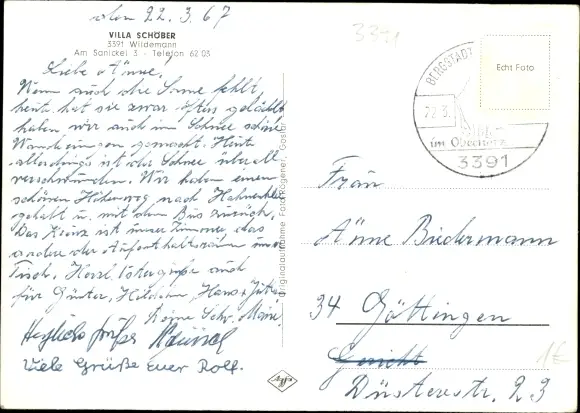 den 22.3.67
VILLA SCHÖBER
3391 Wildemann
Am Sanickel 3 - Telefon 62 03
Liebe Änne,
Wenn auch die Sonne fehlt,
heute hat sie zwar öfters gelächelt
haben wir auch im Schnee schöne
Wanderungen gemacht. Heute
allerdings ist der Schnee überall
verschwunden. Wir haben einen
schönen Höhenweg nach Hahnenklee
gehabt u. mit dem Bus zurück.
Das Kreuz ist unser Zimmer, das
andere der Aufenthaltsraum unser
Tisch. Herzl. Ostergrüße auch
für Günter, Hildchen, Hans +
Deine Schw.
Herzliche Grüße
Viele Grüße Euer Rolf.
Originalaufnahme Foto Rögener, Goslar
Agfa
3391
BERGSTADT
22.3.
im Oberharz
3391
Echt Foto
Frau
Änne Biedermann
34 Göttingen
Düsterestr. 23
1€